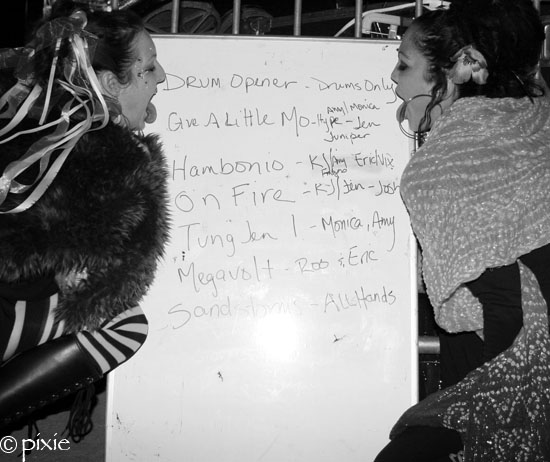 Drum Opener - Drums Only
Give A Little Mo - Hype - Jen
Amy/Monica
Juniper
Hambonio - KJ/Amy Eric/Vix
On Fire - KJ/Jen - Josh
Tung Jen 1 - Monica, Amy
Megavolt - Roo & Eric
Sandstorms - All Hands
© pixie